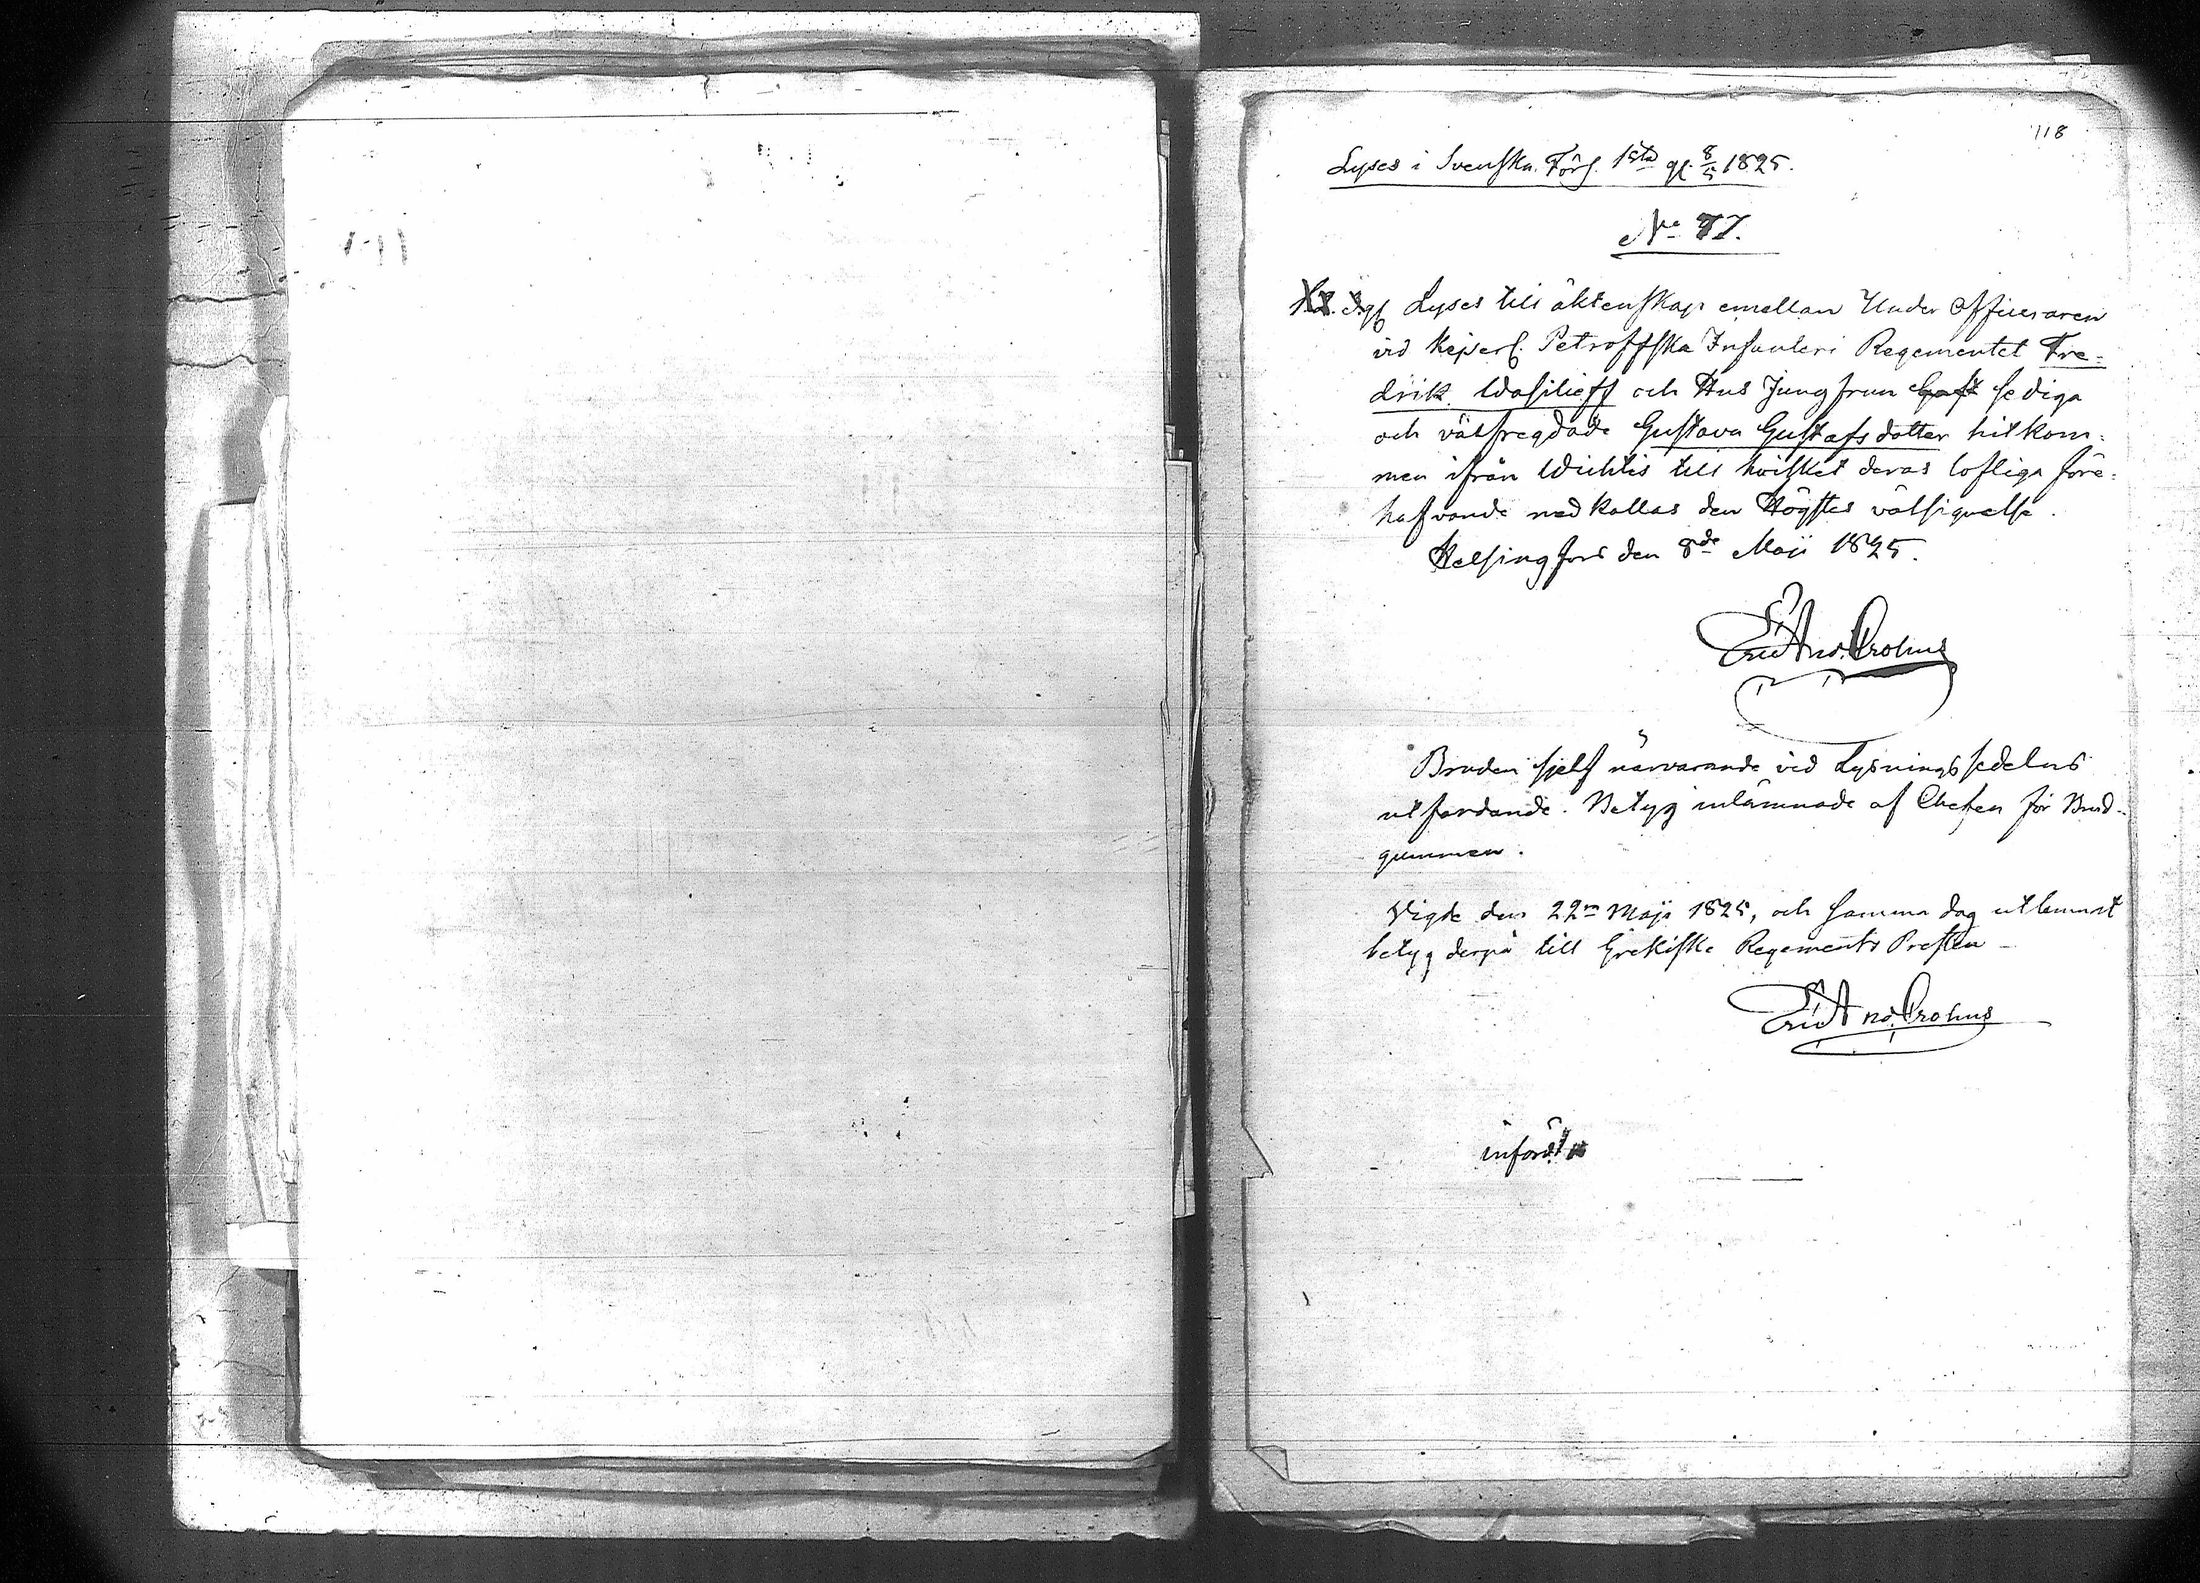 118
Lyses i Svenska Förs. 1sta gl. 8/5 1825.
No 87.
Lyses till äktenskap emellan Under Officieraren
vid Kejserl. Petroffska Infanteri Regementet Fre=
drik Wasilieff och Hus Jungfrun sediga
och välfregdade Gustava Gustafsdotter hitkom=
men ifrån Wichtis till hvilket deras lofliga före=
hafvande nedkallas den Högstes välsignelse.
Helsingfors den 8de Maji 1825.
Eric And. Crohns
Bruden sjelf närvarande vid Lysningssedelns
utfärdande. Betyg inlämnade af Chefen för Brud-
gummen.
Vigde den 22n Maji 1825, och samma dag utlemnat
betyg derpå till Grekiske Regements Presten
Eric And. Crohns
infördt